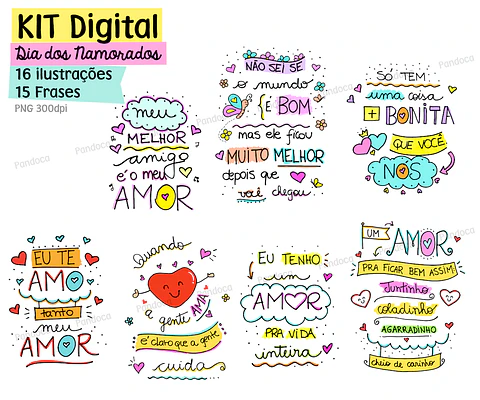 KIT Digital
Dia dos Namorados
16 ilustrações
15 Frases
PNG 300dpi
meu
MELHOR
amigo
é o meu
AMOR
NÃO SEI SE
o mundo
É BOM
mas ele ficou
MUITO MELHOR
depois que
você chegou
SÓ TEM
uma coisa
+ BONITA
QUE VOCÊ
NÓS
EU TE
AMO
tanto
meu
AMOR
Quando
a gente AMA
é claro que a gente
cuida
EU TENHO
um
AMOR
PRA VIDA
inteira
UM AMOR
PRA FICAR BEM ASSIM
Juntinho
coladinho
AGARRADINHO
cheio de carinho
Pandoca